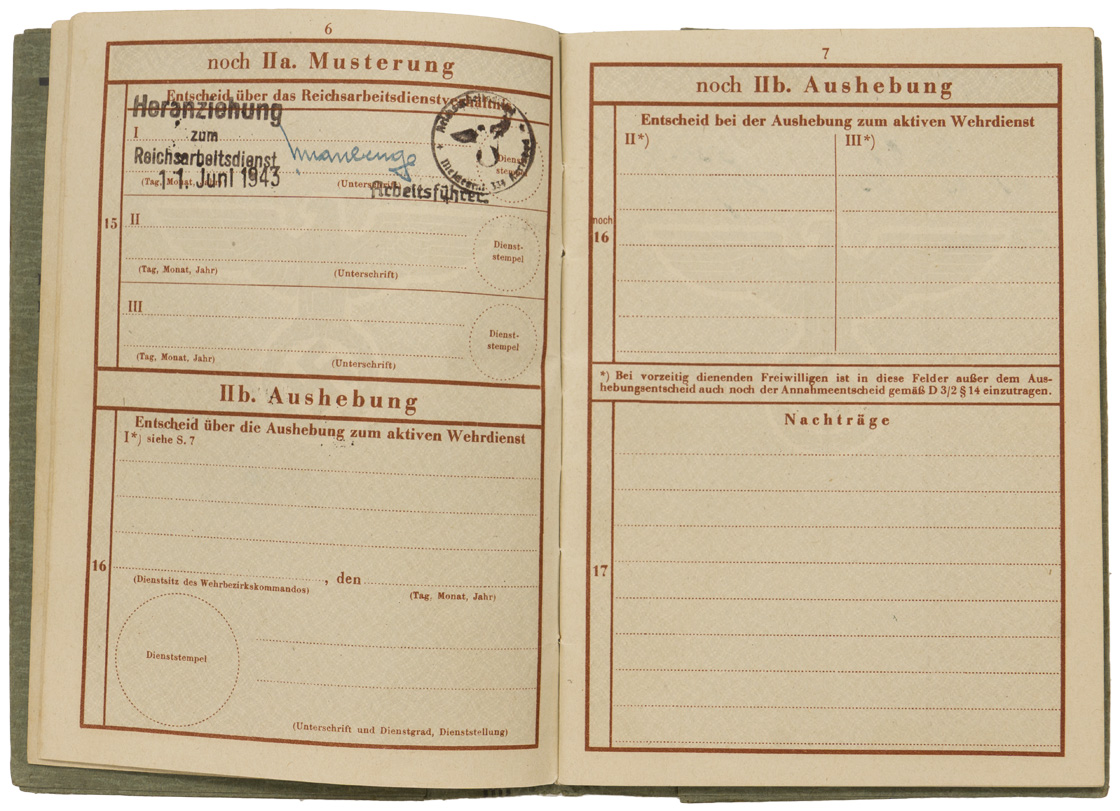 6
noch IIa. Musterung
Entscheid über das Reichsarbeitsdienstverhältnis
Heranziehung
I
zum
Reichsarbeitsdienst
11. Juni 1943
(Tag, Monat, Jahr)
(Unterschrift)
Arbeitsführer
Dienst-
stempel
15
II
(Tag, Monat, Jahr)
(Unterschrift)
Dienst-
stempel
III
(Tag, Monat, Jahr)
(Unterschrift)
Dienst-
stempel
IIb. Aushebung
Entscheid über die Aushebung zum aktiven Wehrdienst
I*) siehe S. 7
16
, den
(Dienstsitz des Wehrbezirkskommandos)
(Tag, Monat, Jahr)
Dienststempel
(Unterschrift und Dienstgrad, Dienststellung)
7
noch IIb. Aushebung
Entscheid bei der Aushebung zum aktiven Wehrdienst
II*)
III*)
noch
16
*) Bei vorzeitig dienenden Freiwilligen ist in diese Felder außer dem Aus-
hebungsentscheid auch noch der Annahmeentscheid gemäß D 3/2 § 14 einzutragen.
Nachträge
17